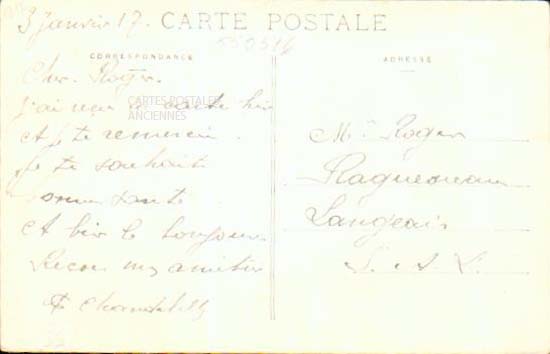 3 Janvier 17.
CARTE POSTALE
CORRESPONDANCE
Cher Roger.
J'ai reçu ta carte hier
et je te remercie.
Je te souhaite
bonne santé
et bien le bonjour
Reçois mes amitiés
CARTES POSTALES
ANCIENNES
ADRESSE
Mr Roger
Langeais
I. & L.